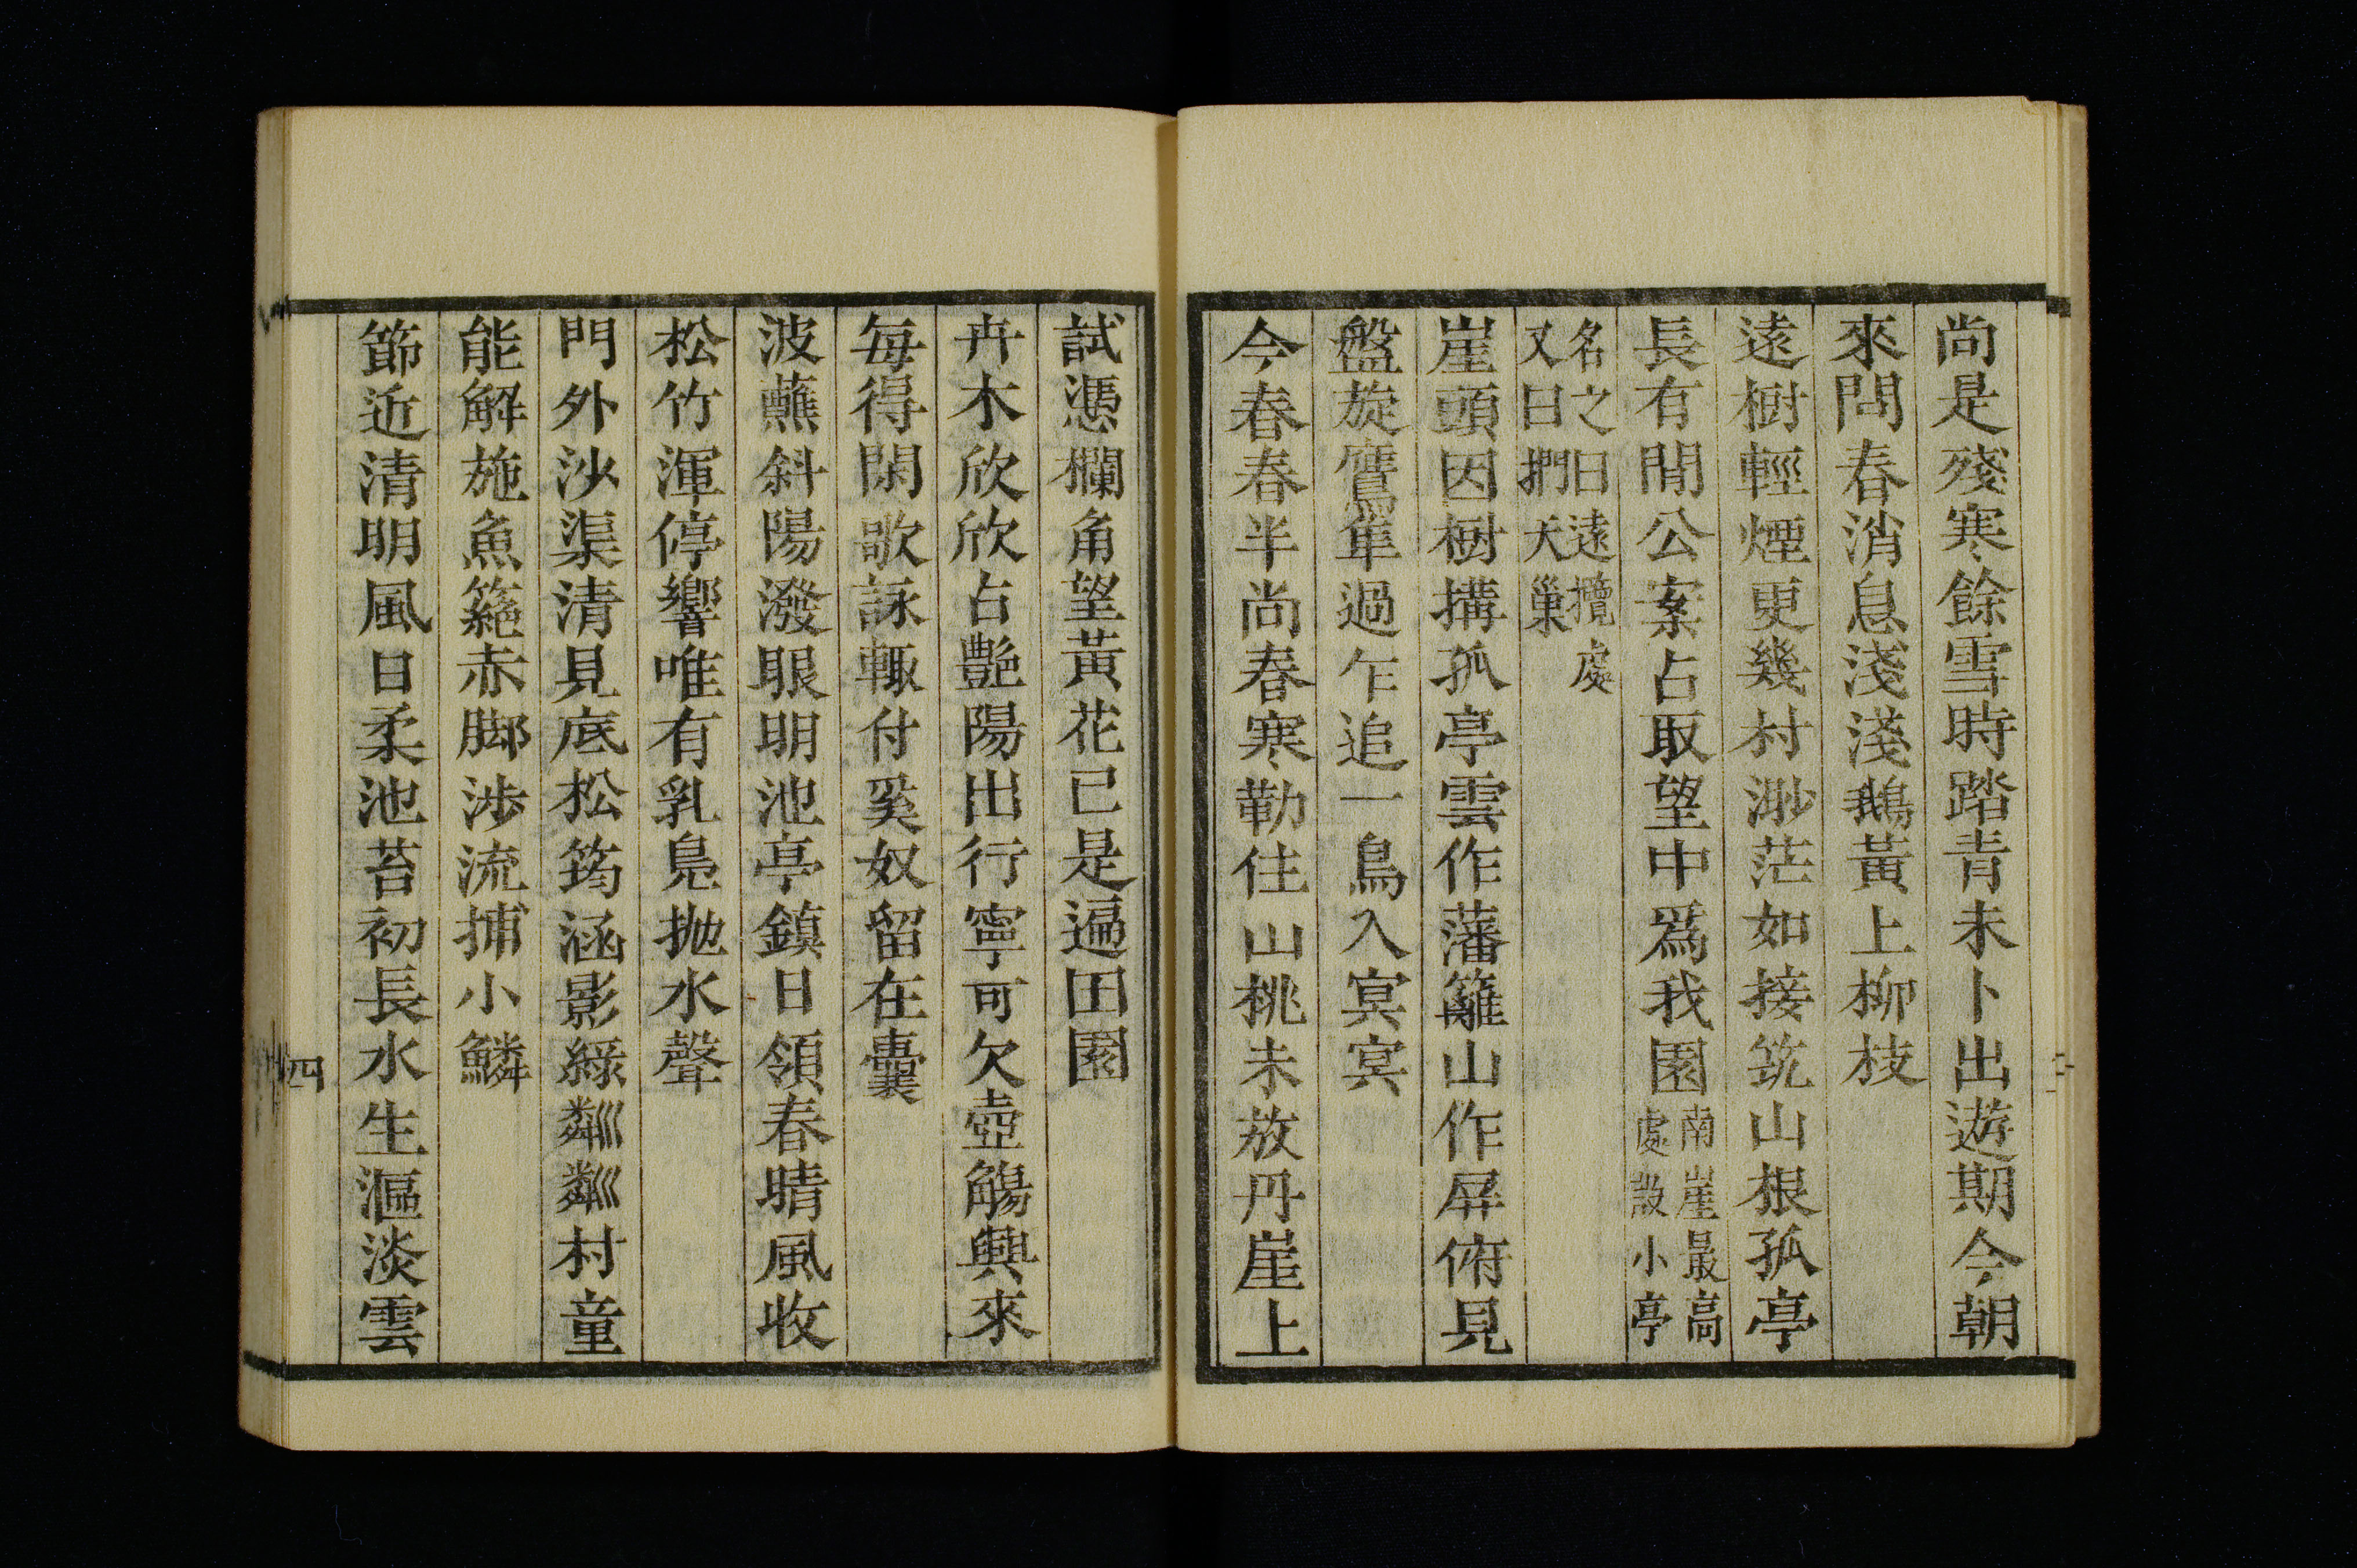 尚是殘寒餘雪時踏青未卜出遊期今朝
來問春消息淺淺鵝黃上柳枝
遠樹輕煙更幾村渺茫如接筑山根孤亭
長有閒公案占取望中爲我園南崖最高
處設小亭
名之曰遠攬處
又曰捫天巢
崖頭因樹搆孤亭雲作藩籬山作屏俯見
盤旋鷹隼過乍追一鳥入冥冥
今春春半尚春寒勒住山桃未放丹崖上
試憑欄角望黃花已是遍田園
卉木欣欣占艷陽出行寧可欠壺觴興來
每得閑歌詠輙付奚奴留在囊
波蘸斜陽潑眼明池亭鎮日領春晴風收
松竹渾停響唯有乳鳧拋水聲
門外沙渠清見底松筠涵影綠粼粼村童
能解施魚籠赤脚涉流捕小鱗
節近清明風日柔池苔初長水生漚淡雲
四